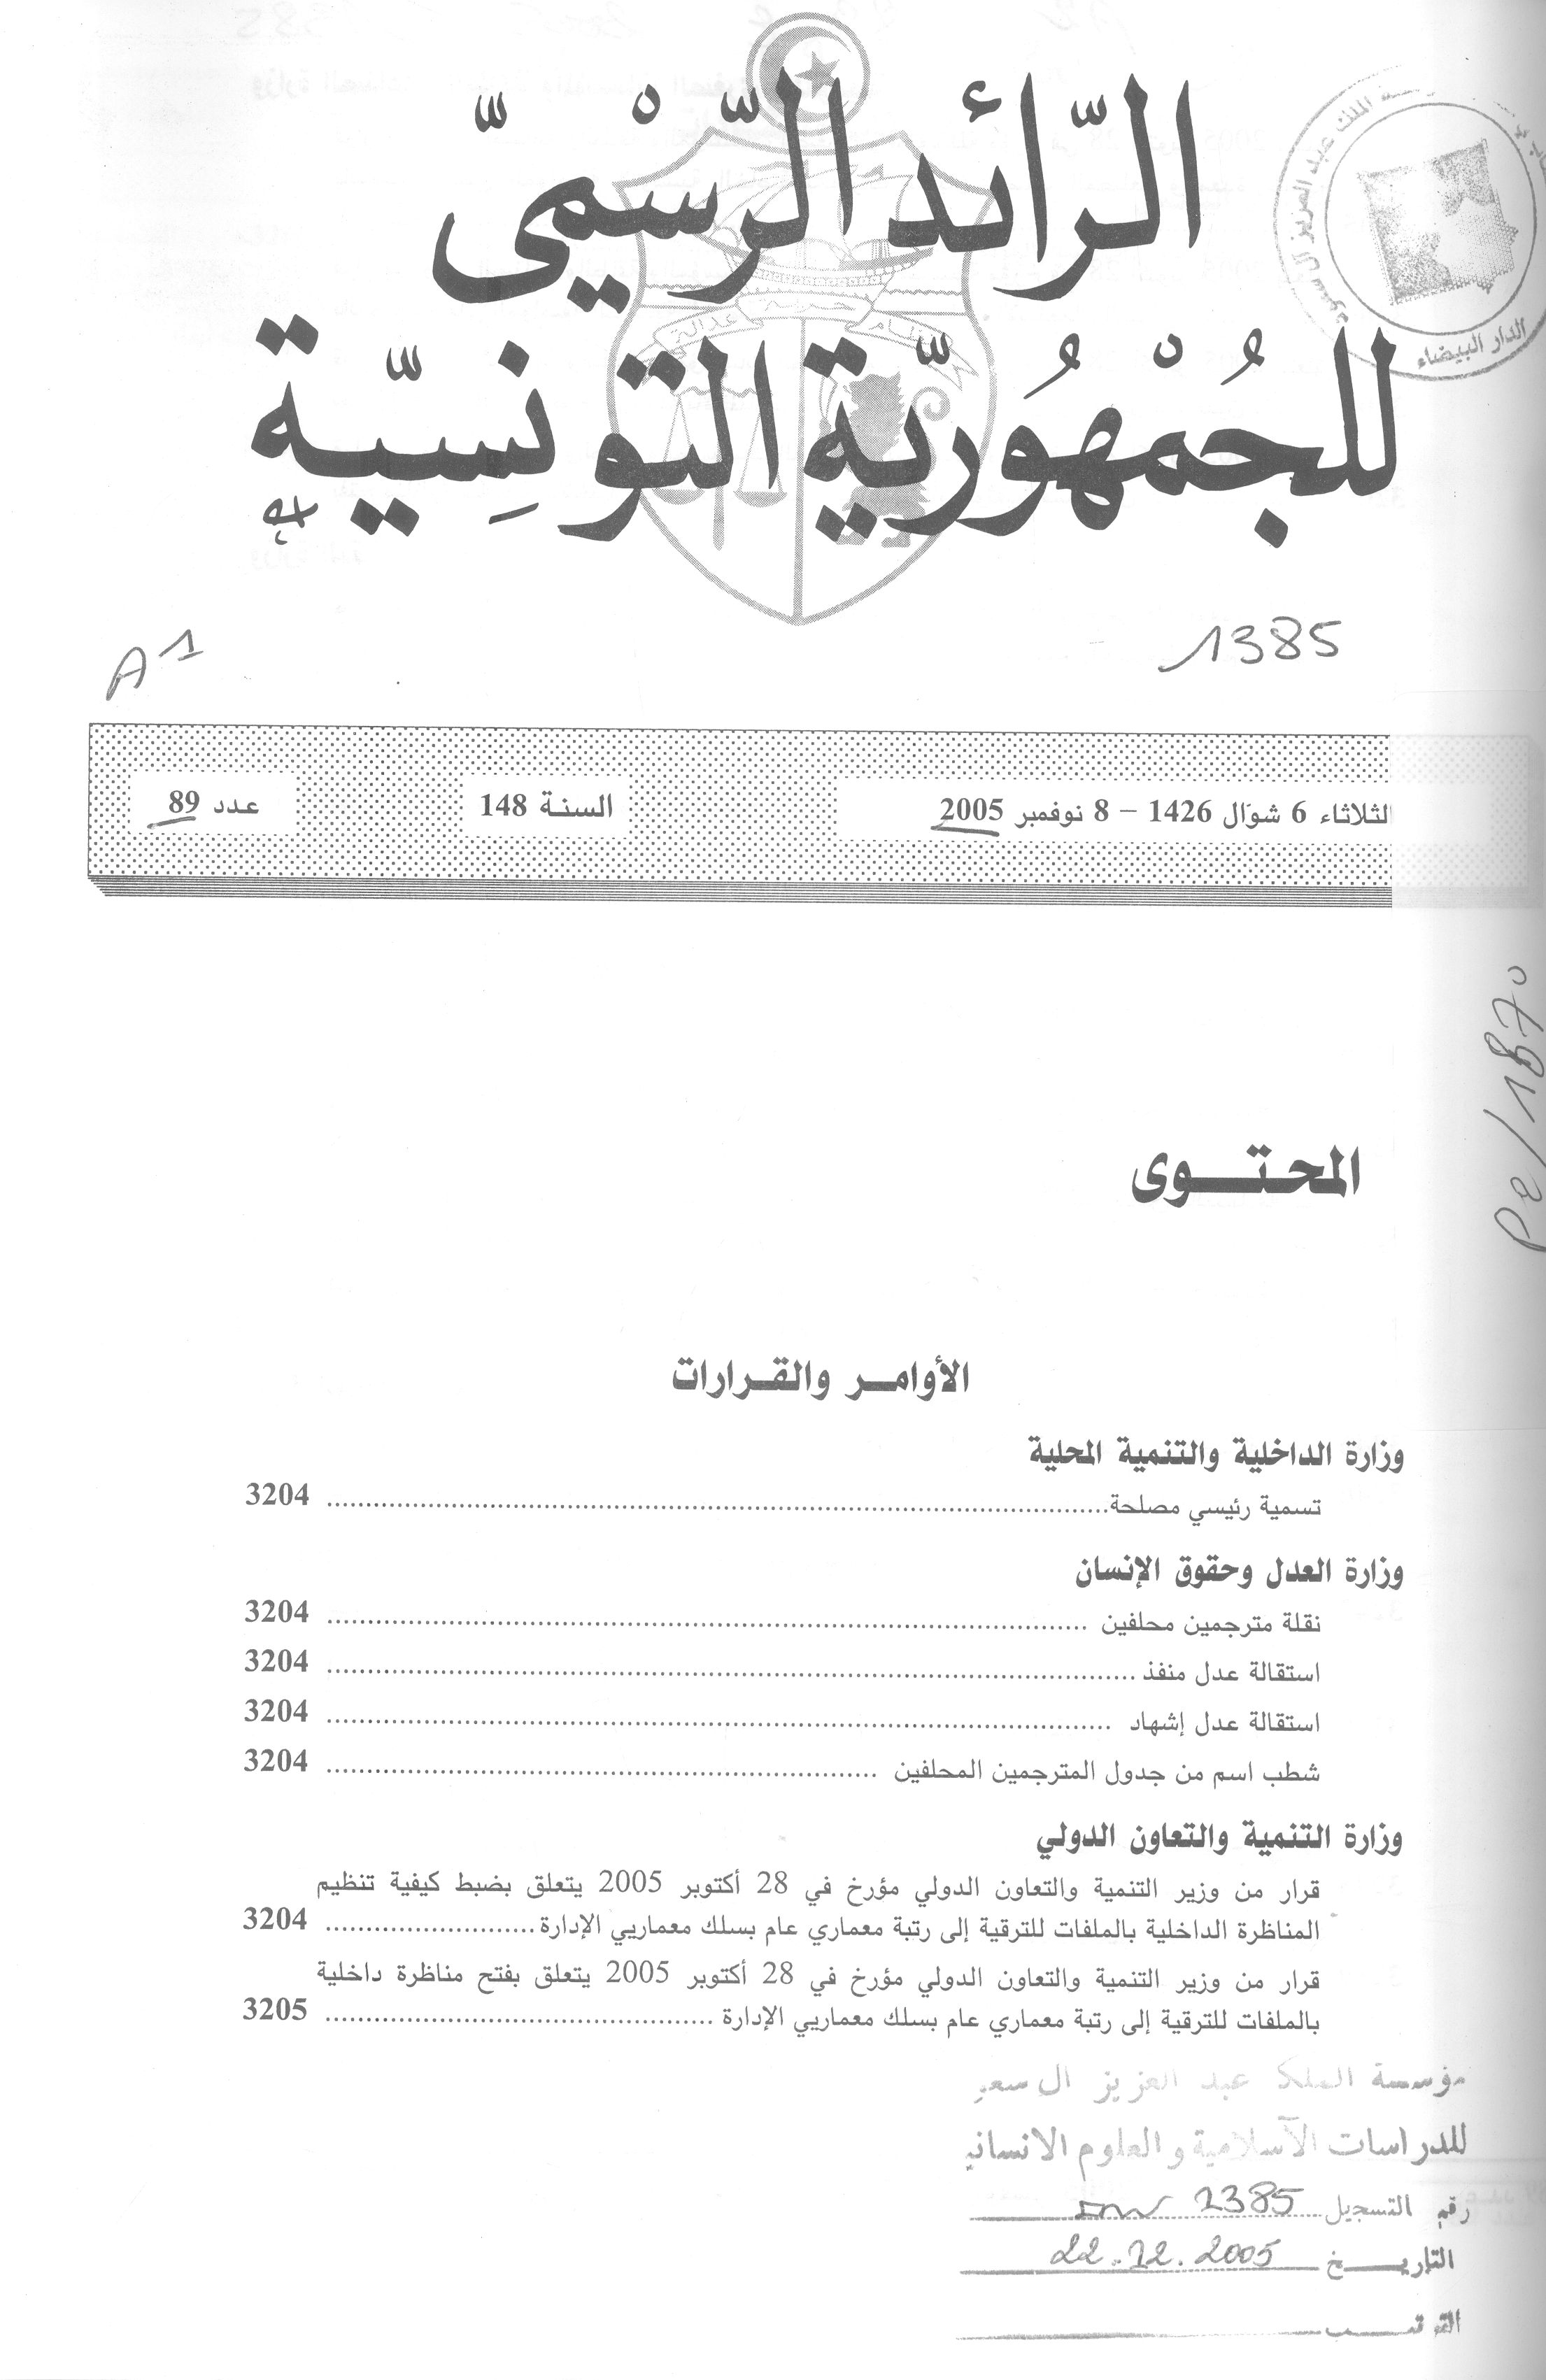 الرّائد الرّسْميّ
للجُمْهُوريّة التّونِسيّة
نظام حرية عدالة
الملك عبد العزيز آل سعود
الدار البيضاء
A1
1385
الثلاثاء 6 شوّال 1426 – 8 نوفمبر 2005
السنة 148
عدد 89
Pe/1870
المحتوى
الأوامر والقرارات
وزارة الداخلية والتنمية المحلية
تسمية رئيسي مصلحة........................ 3204
وزارة العدل وحقوق الإنسان
نقلة مترجمين محلفين ........................ 3204
استقالة عدل منفذ ........................ 3204
استقالة عدل إشهاد ........................ 3204
شطب اسم من جدول المترجمين المحلفين ........................ 3204
وزارة التنمية والتعاون الدولي
قرار من وزير التنمية والتعاون الدولي مؤرخ في 28 أكتوبر 2005 يتعلق بضبط كيفية تنظيم
المناظرة الداخلية بالملفات للترقية إلى رتبة معماري عام بسلك معماريي الإدارة........................ 3204
قرار من وزير التنمية والتعاون الدولي مؤرخ في 28 أكتوبر 2005 يتعلق بفتح مناظرة داخلية
بالملفات للترقية إلى رتبة معماري عام بسلك معماريي الإدارة ........................ 3205
مؤسسة الملك عبد العزيز آل سعو
للدراسات الآسلامية والعلوم الانساني
رقم التسجيل 1385
التاريخ 22.12.2005